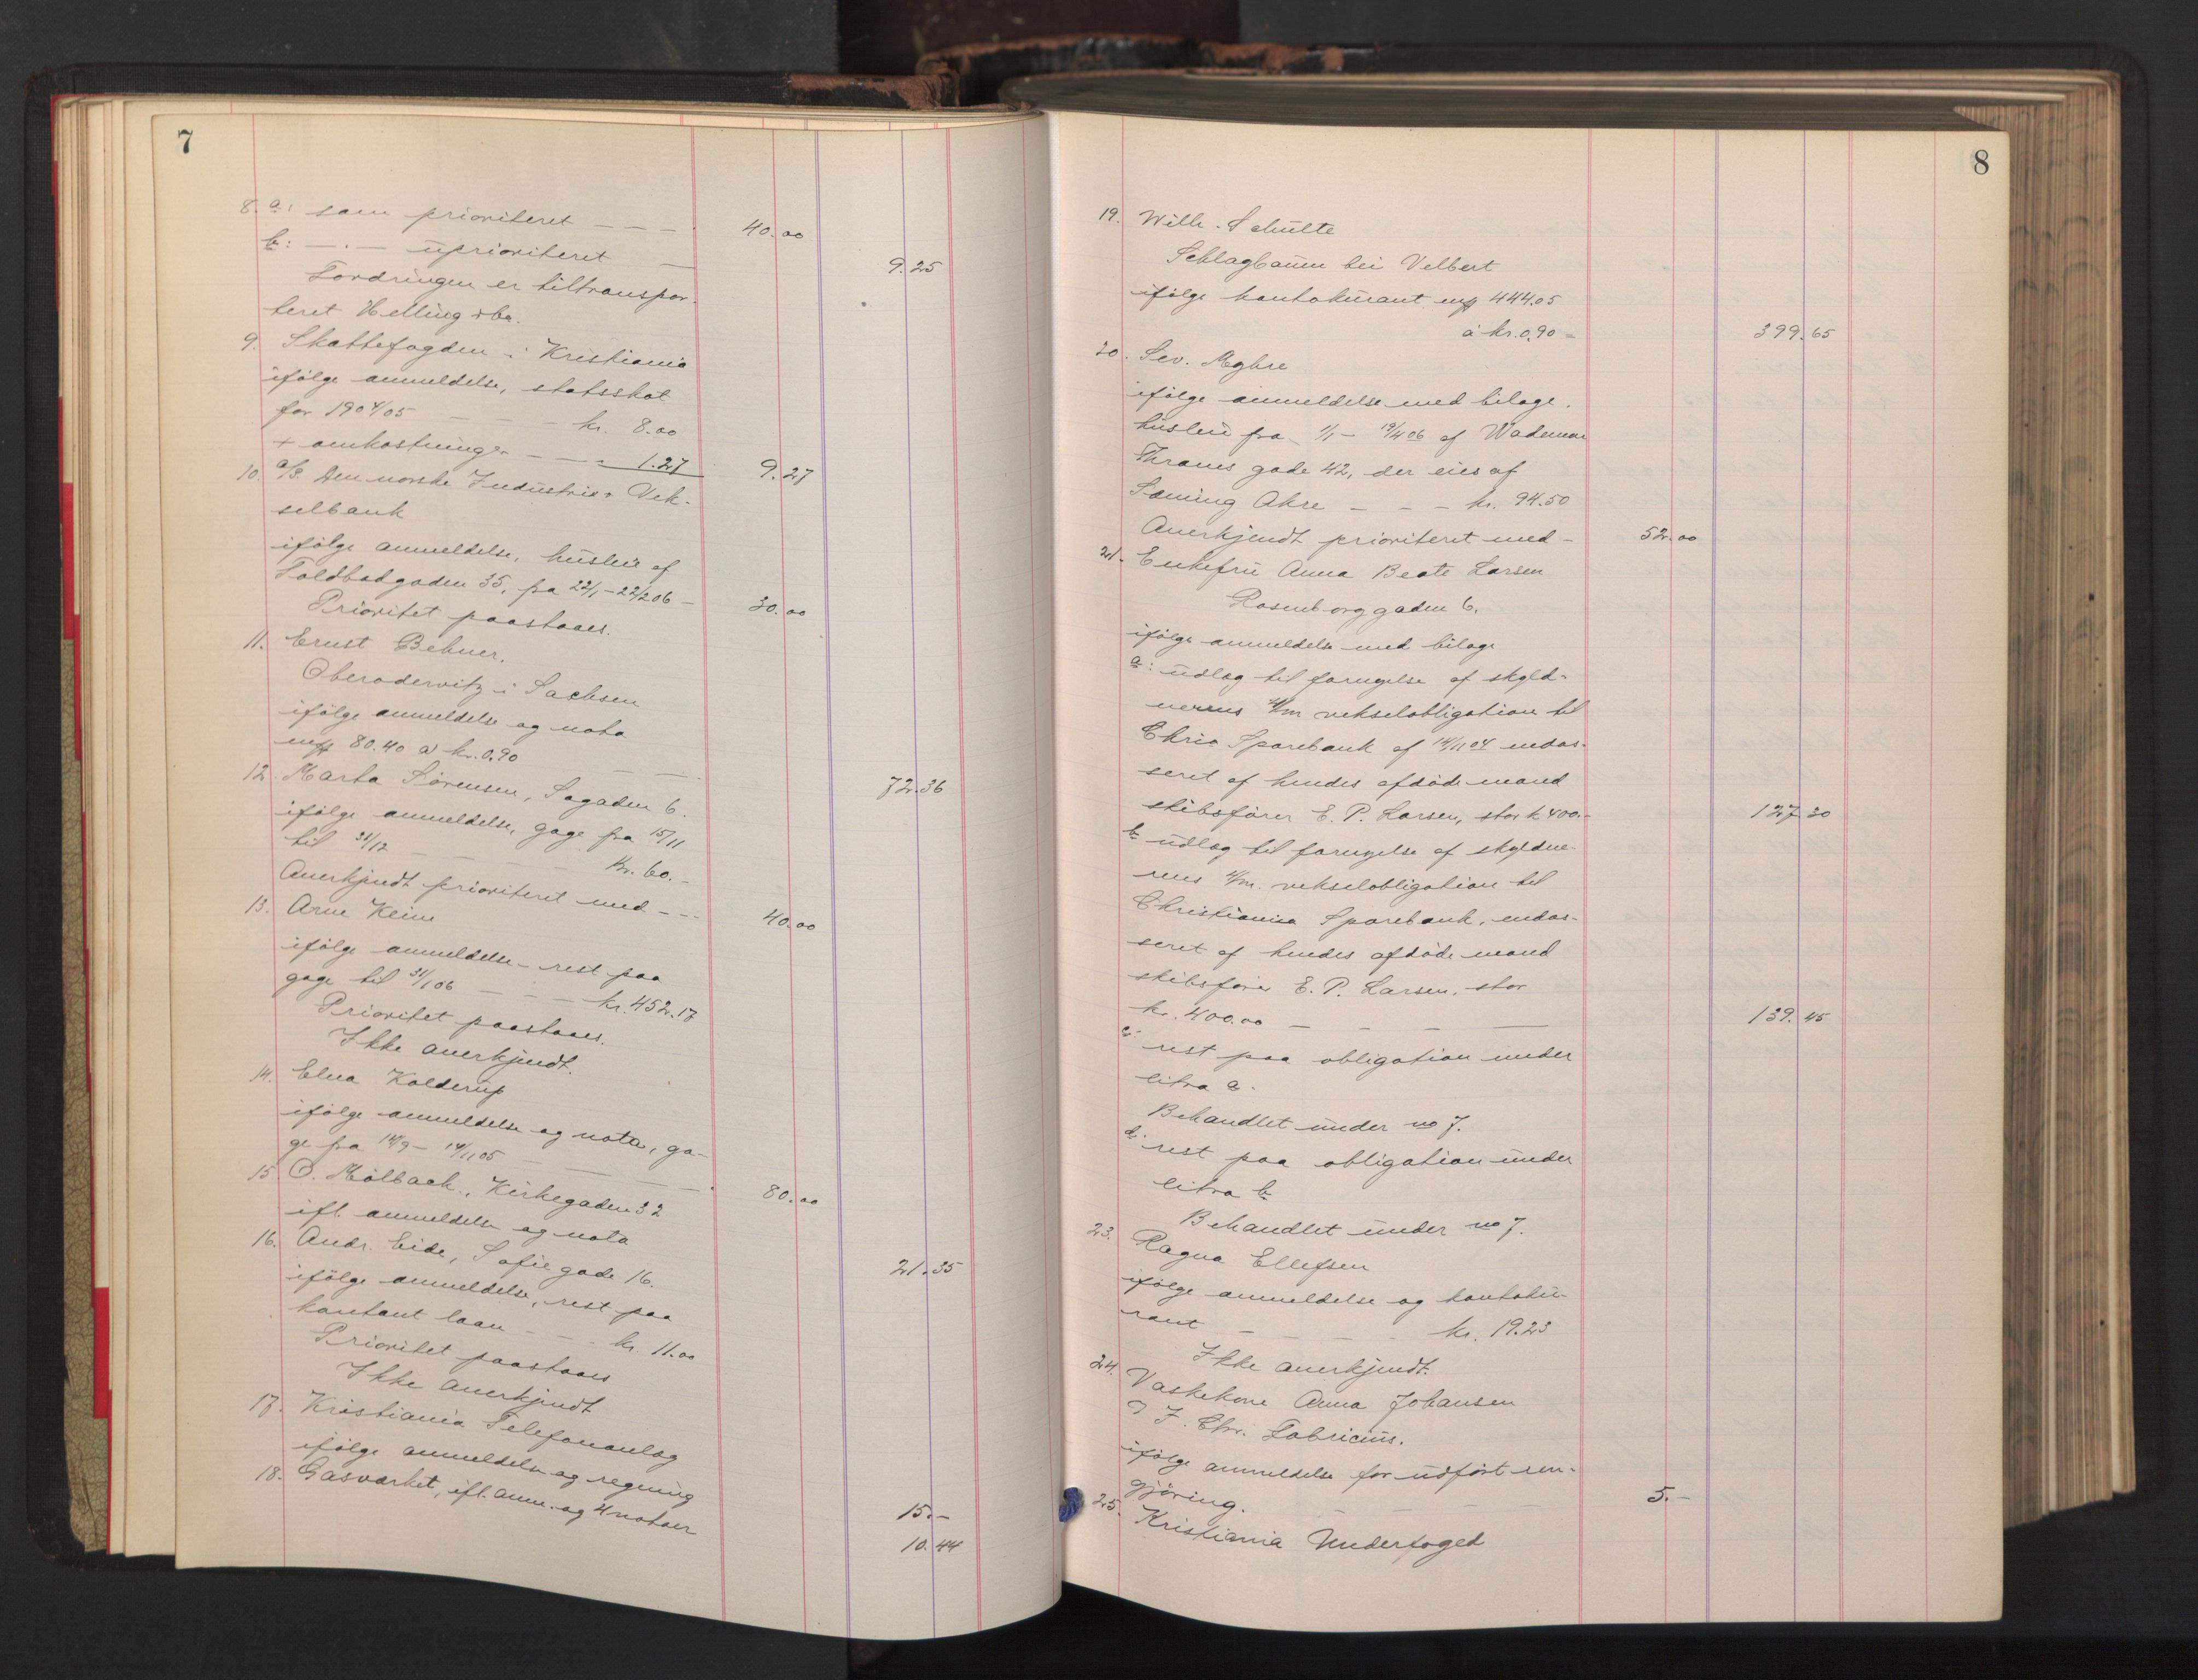 7
8. a: som prioriteret - - - 40.00
b: - . - uprioriteret - 9.25
Fordringen er tiltranspor-
teret Helling & bo.
9. Skattefogden i Kristiania
ifölge anmeldelse, statsskat
for 1904/05 - - - kr. 8.00
+ omkostninger - - - 1.27 9.27
10. A/S Den norske Industri & Vek-
selbank
ifölge anmeldelse, husleie af
Toldbodgaden 35, fra 22/1 - 22/2 06 - 30.00
Prioritet paastaaes.
11. Ernst Behner,
Oberoderwitz i Sachsen
ifölge anmeldelse og nota
80.40 a kr. 0.90 - - 72.36
12. Marta Sörensen, Sagaden 6.
ifölge anmeldelse, gage fra 15/11
til 31/12 - - - Kr. 60.-
Anerkjendt prioriteret med - - - 40.00
13. Arne Keim
ifölge anmeldelse - rest paa
gage til 31/1 06 - - - kr. 452.17
Prioritet paastaaes.
Ikke anerkjendt.
14. Elna Kolderup
ifölge anmeldelse og nota, ga-
ge fra 14/9 - 14/11 05 - - - 80.00
15. O. Mölbach, Kirkegaden 32
ifl. anmeldelse og nota 21.35
16. Andr. Eide, Sofie gade 16.
ifölge anmeldelse, rest paa
kontant laan - - - kr. 11.00
Prioritet paastaaes
Ikke anerkjendt
17. Kristiania Telefonanlæg
ifölge anmeldelse og regning 15.-
18. Gasværket, ifl. anm. og 4 notaer 10.44
8
19. Willh. Schulte
Schlagbaum bei Velbert
ifölge kontokurant 444.05
à kr. 0.90 = 399.65
20. Sev. Myhre
ifölge anmeldelse med bilage.
husleie fra 1/1 - 19/4 06 af Waldemar
Thranes gade 42, der eies af
Sæming Akre - - - kr. 94.50
Anerkjendt prioriteret med - 52.00
21. Enkefru Anna Beate Larsen
Rosenborggaden 6.
ifölge anmeldelse med bilage
a: udlæg til fornyelse af skyld-
nerens 4/m vekselobligation til
Chria Sparebank af 14/11 04 endos-
seret af hendes afdöde mand
skibsförer E. P. Larsen, stor k 400.- 127.30
b: udlæg til fornyelse af skyldne-
rens 4/m. vekselobligation til
Christiania Sparebank, endos-
seret af hendes afdöde mand
skibsförer E. P. Larsen, stor
kr. 400.00 - - - - 139.45
c: rest paa obligation under
litra a.
Behandlet under no 7.
d: rest paa obligation under
litra b
Behandlet under no 7.
23. Ragna Ellefsen
ifölge anmeldelse og kontoku-
rant - - - - kr. 19.23
Ikke anerkjendt.
24. Vaskekone Anna Johansen
J. Chr. Fabricius.
ifölge anmeldelse for udfört ren-
gjöring. - - - 5.-
25. Kristiania Underfoged